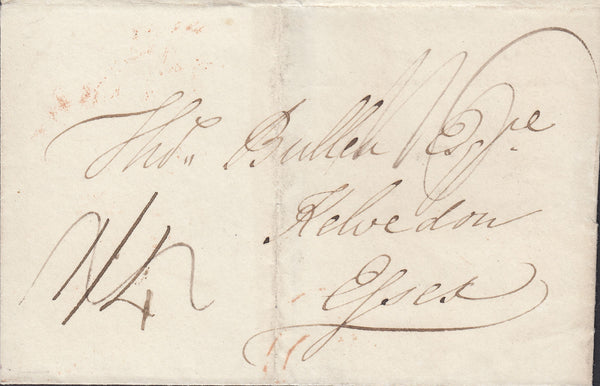 Tho,, Bullen Esqre
Kelvedon
Essex
1/4